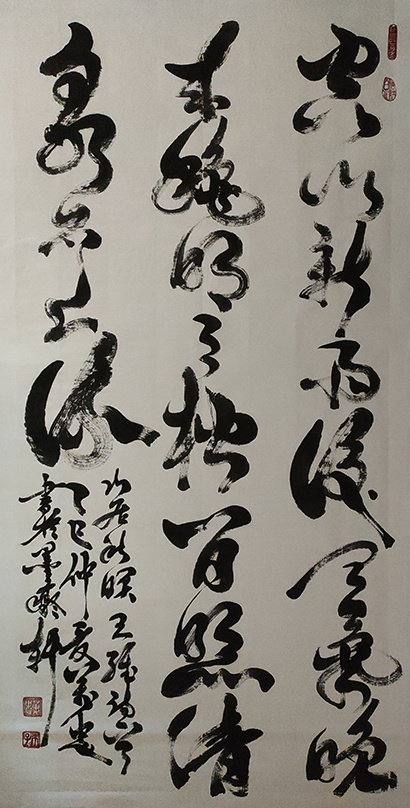 空山新雨後天氣晚
来秋明月松間照清
泉石上流
山居秋暝王維詩
乙巳仲夏萬
書於墨軒